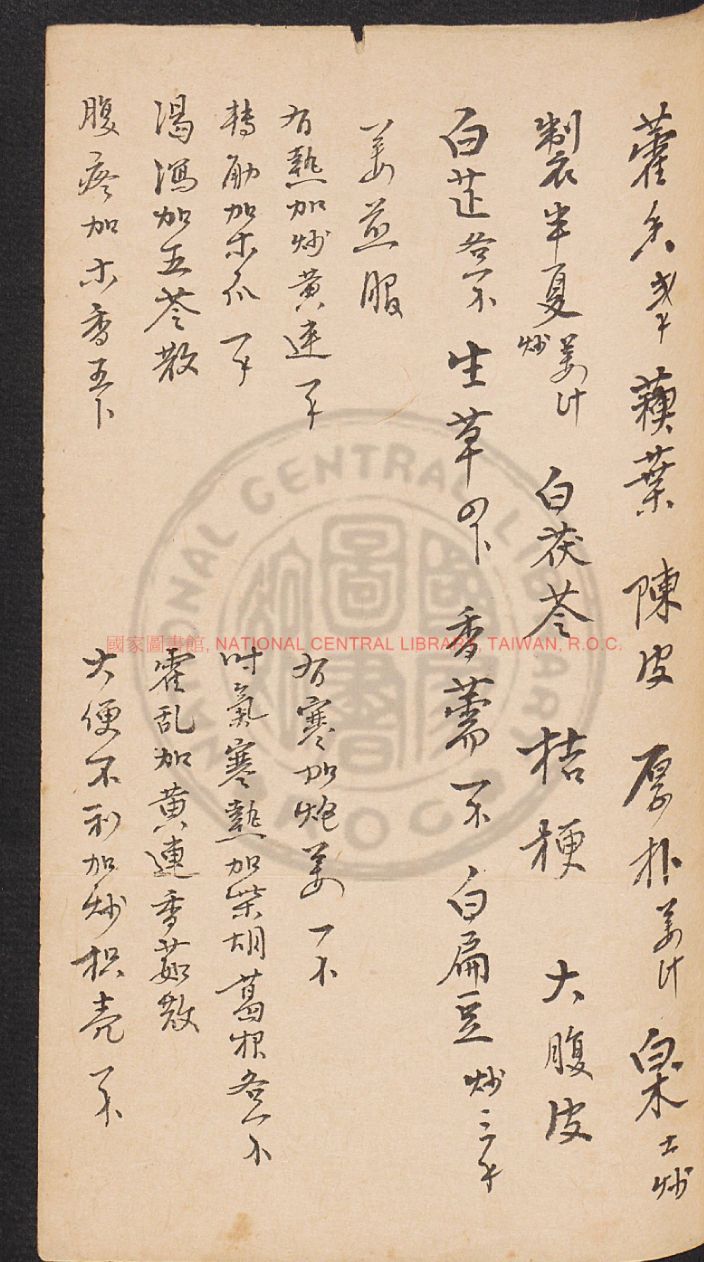 藿香 蘓葉 陳皮 厚朴姜汁 白术土炒
製半夏姜汁炒 白茯苓 桔梗 大腹皮
白芷各 生草 香薷 白扁豆炒三
姜煎服
有熱加炒黄連一
有寒加炮姜一
轉筋加木瓜一
時氣寒熱加柴胡葛根各一
渴瀉加五苓散
霍乱加黄連香茹散
腹疼加木香五
大便不利加炒枳壳一
國家圖書館, NATIONAL CENTRAL LIBRARY, TAIWAN, R.O.C.
NATIONAL CENTRAL LIBRARY
R.O.C.